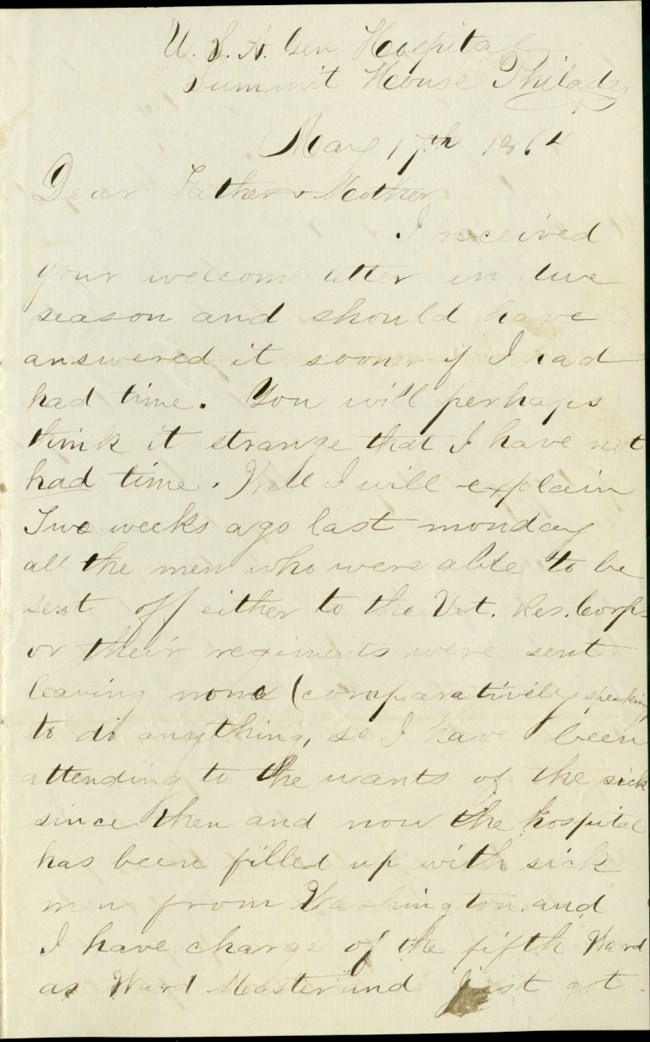 U. S. A. Gen Hospital
Summit House Philada
May 17th 1864
Dear Father & Mother
I received
your welcome letter in due
season and should have
answered it sooner if I had
had time. You will perhaps
think it strange that I have not
had time. Well I will explain
Two weeks ago last monday
all the men who were able to be
sent off either to the Vet. Res. Corps
or their regiments were sent
leaving none (comparatively speaking
to do anything, so I have been
attending to the wants of the sick
since then and now the hospital
has been filled up with sick
men from Washington and
I have charge of the fifth Ward
as Ward Master and just got